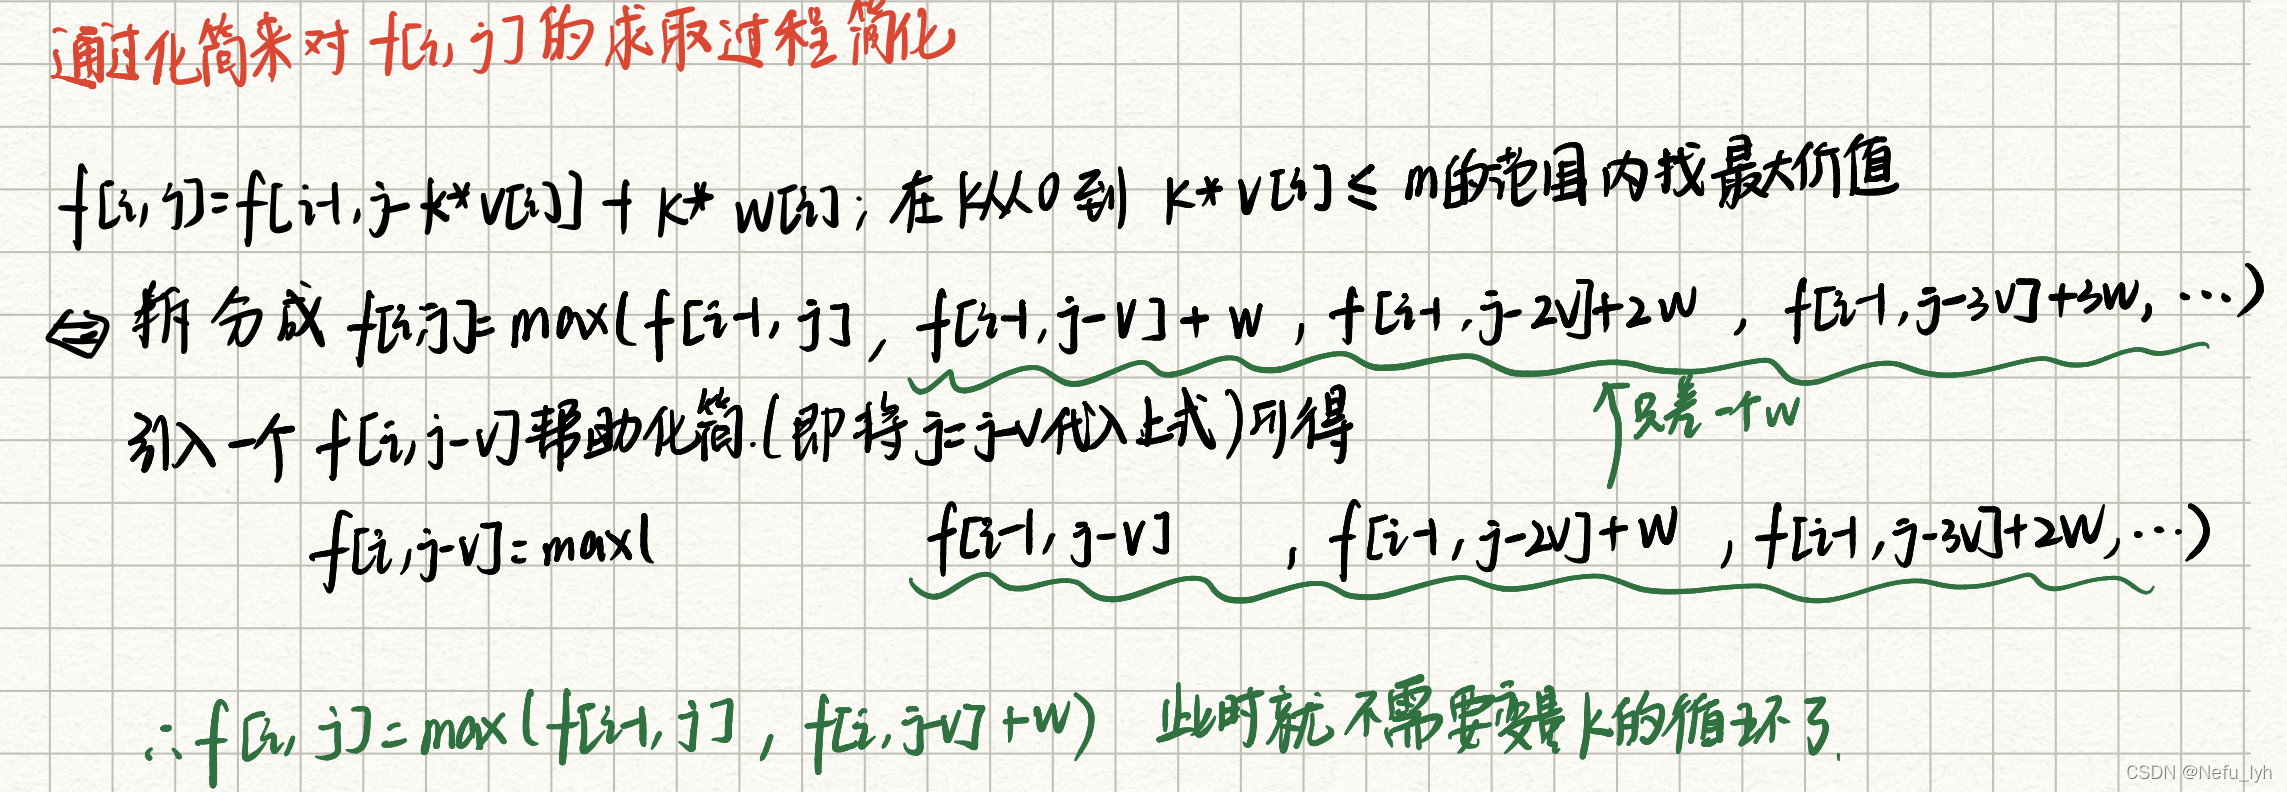 通过化简来对 f[i, j] 的求取过程简化
f[i, j]=f[i-1, j-k*v[i]] + k* w[i]; 在k从0到 k*v[i]≤m的范围内找最大价值
⇔ 拆分成 f[i,j]=max(f[i-1, j], f[i-1, j-v]+w, f[i-1, j-2v]+2w, f[i-1, j-3v]+3w, ...)
只差一个w
引入一个 f[i, j-v]帮助化简.(即将j=j-v代入上式)可得
f[i, j-v]=max( f[i-1, j-v] , f[i-1, j-2v]+w , f[i-1, j-3v]+2w, ...)
∴f[i, j]=max(f[i-1, j], f[i, j-v]+w) 此时就不需要变量k的循环了.
CSDN @Nefu_lyh